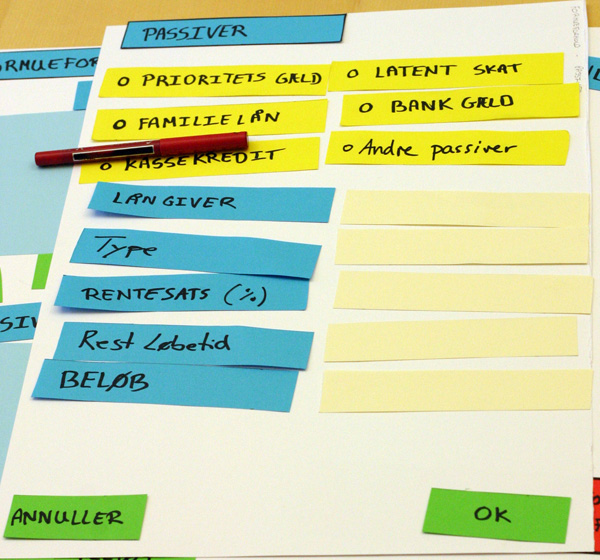 PASSIVER
O PRIORITETS GÆLD
O LATENT SKAT
O FAMILIE LÅN
O BANK GÆLD
O KASSEKREDIT
O Andre passiver
LÅN GIVER
Type
RENTESATS (%)
Rest Løbetid
BELØB
ANNULLER
OK